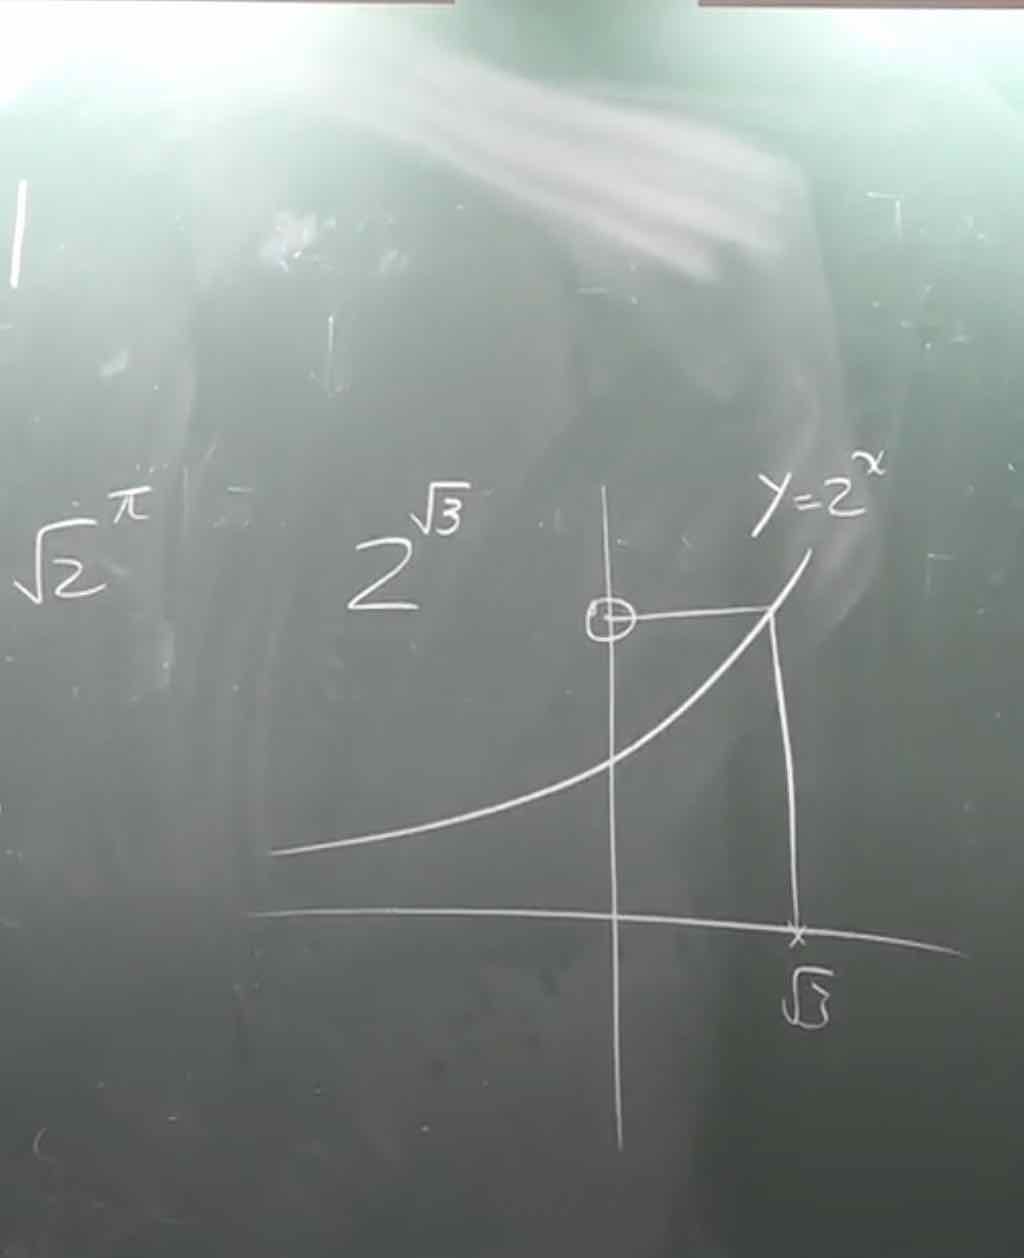 √2^π
2^√3
y=2^x
√3